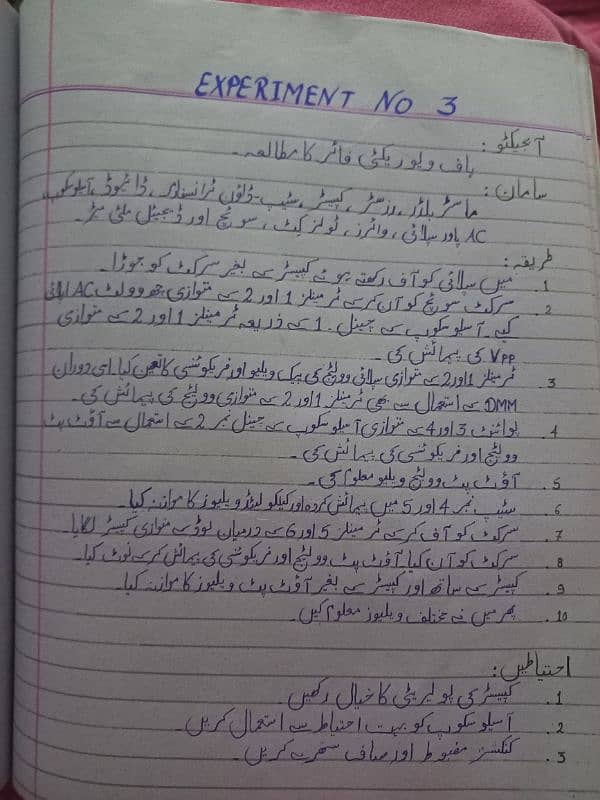 EXPERIMENT NO 3
آبجیکٹو:
ہاف ویو ریکٹی فائر کا مطالعہ۔
سامان:
ماسٹر بلڈر، رزسٹر، کپیسٹر، سٹیپ-ڈاؤن ٹرانسفارمر، ڈائیوڈ، آسیلوسکوپ
AC پاور سپلائی، وائرز، ٹولز کٹ، سوئچ اور ڈیجیٹل ملٹی میٹر۔
طریقہ:
1. میں سپلائی کو آف رکھتے ہوئے کپیسٹر کے بغیر سرکٹ کو جوڑا۔
2. سرکٹ سوئچ کو آن کر کے ٹرمینلز 1 اور 2 کے متوازی چھ وولٹ AC اپلائی
کیے۔ آسیلوسکوپ کے چینل۔1 کے ذریعہ ٹرمینلز 1 اور 2 کے متوازی
VPP کی پیمائش کی۔
3. ٹرمینلز 1 اور 2 کے متوازی سپلائی وولٹیج کی پیک ویلیو اور فریکوئنسی کا تعین کیا۔ اسی دوران
DMM کے استعمال سے بھی ٹرمینلز 1 اور 2 کے متوازی وولٹیج کی پیمائش کی۔
4. پوائنٹ 3 اور 4 کے متوازی آسیلوسکوپ کے چینل نمبر 2 کے استعمال سے آؤٹ پٹ
وولٹیج اور فریکوئنسی کی پیمائش کی۔
5. آؤٹ پٹ وولٹیج ویلیو معلوم کی۔
6. سٹیپ نمبر 4 اور 5 میں پیمائش کردہ اور کیلکولیٹڈ ویلیوز کا موازنہ کیا۔
7. سرکٹ کو آف کر کے ٹرمینلز 5 اور 6 کے درمیان لوڈ کے متوازی کپیسٹر لگایا
8. سرکٹ کو آن کیا۔ آؤٹ پٹ وولٹیج اور فریکوئنسی کی پیمائش کر کے نوٹ کیا۔
9. کپیسٹر کے ساتھ اور کپیسٹر کے بغیر آؤٹ پٹ ویلیوز کا موازنہ کیا۔
10. پھر میں نے مختلف ویلیوز معلوم کیں۔
احتیاطیں:
1. کپیسٹر کی پولیریٹی کا خیال رکھیں۔
2. آسیلوسکوپ کو بہت احتیاط سے استعمال کریں۔
3. کنکشنز مضبوط اور صاف ستھرے کریں۔